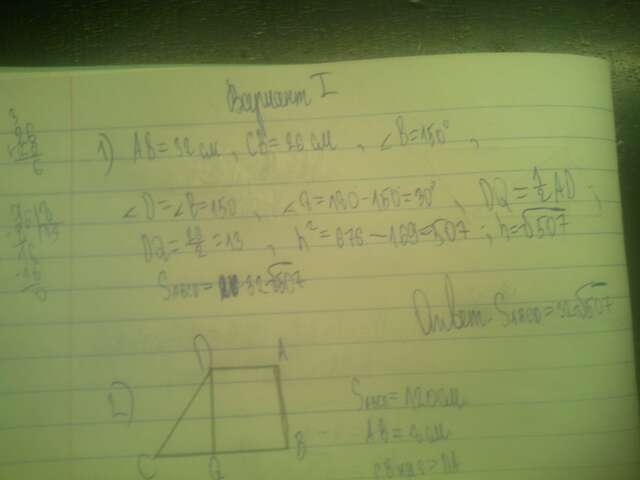 Вариант I
1) AB=32 см, CB=26 см, ∠B=150°,
∠D=∠B=150, ∠A=180-150=30°, DQ=1/2 AD;
DQ=26/2=13, h²=676-169=507; h=√507
S ABCD= 32√507
Ответ. S ABCD=32√507
2)
D A
C Q B
S ABCD=120см
AB=8см